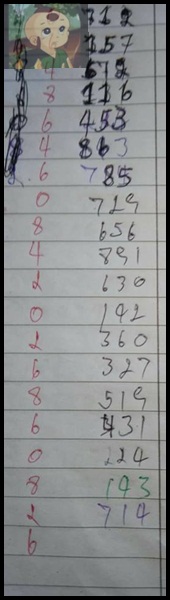 712
157
4 612
8 116
6 453
4 863
6 785
0 729
8 656
4 891
2 630
0 142
2 360
6 327
8 519
6 431
0 224
8 143
2 714
6